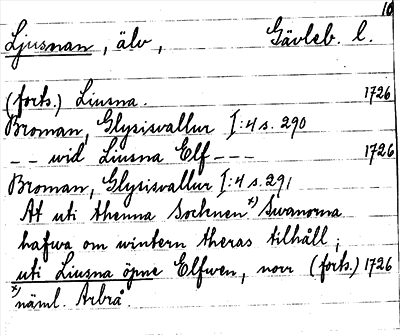 10
Ljusnan, älv, Gävleb. l.
(forts.) Liusna. 1726
Broman, Glysisvallur I:4 s. 290
-- wid Liusna Elf --- 1726
Broman, Glysisvallur I:4 s. 291
At uti thenna Socknen x) Swanorna
hafwa om wintern theras tilhåll;
uti Liusna öpne Elfwen, norr (forts.) 1726
x) näml. Arbrå.